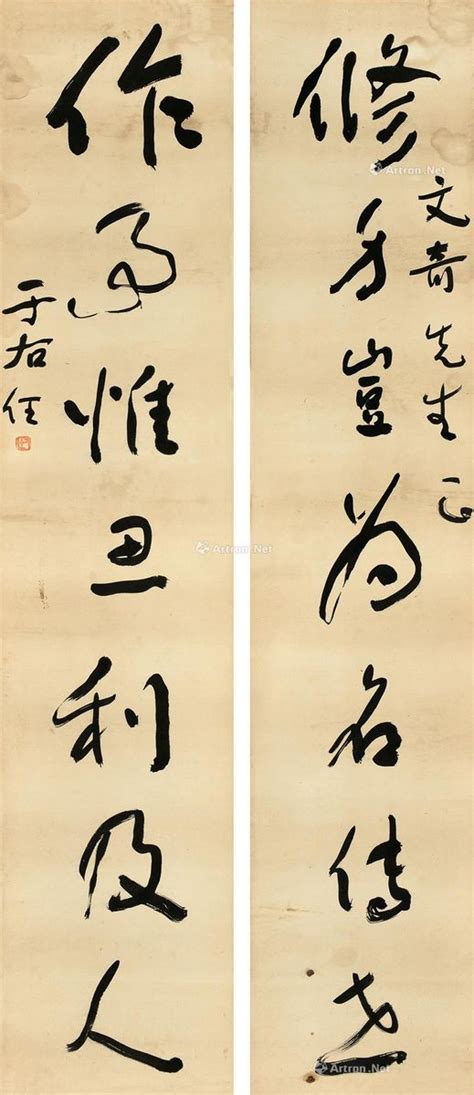 修身豈為名傳世
文奇先生正
作事惟思利及人
于右任
Artron.Net
Artron.Net
Artron.Net